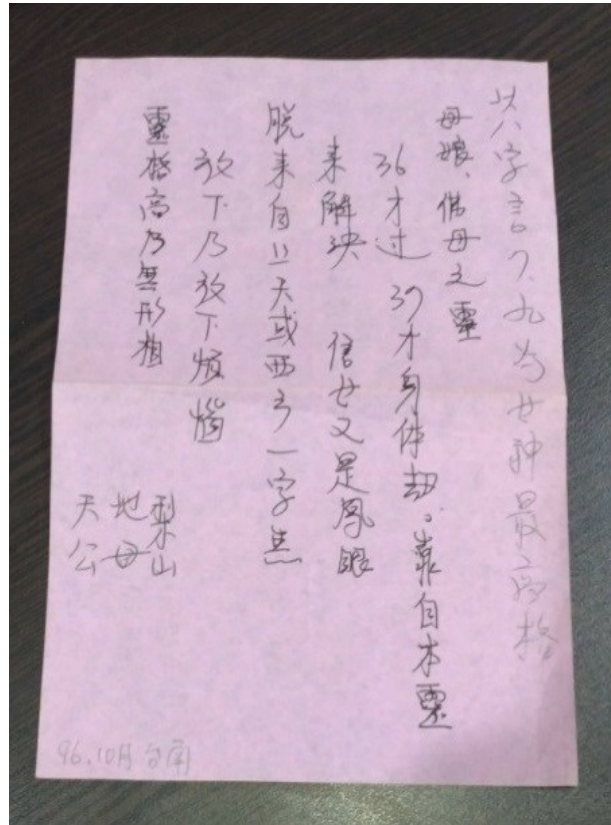 以八字言7.九為女神最高格
母娘、佛母之靈
36才过 39才身体劫。靠自本靈
来解决 信女又是鳳眼
脱来自 天或西方一字
放下乃放下煩惱
靈格高乃無形相
梨山
地母
天公
96.10月台南